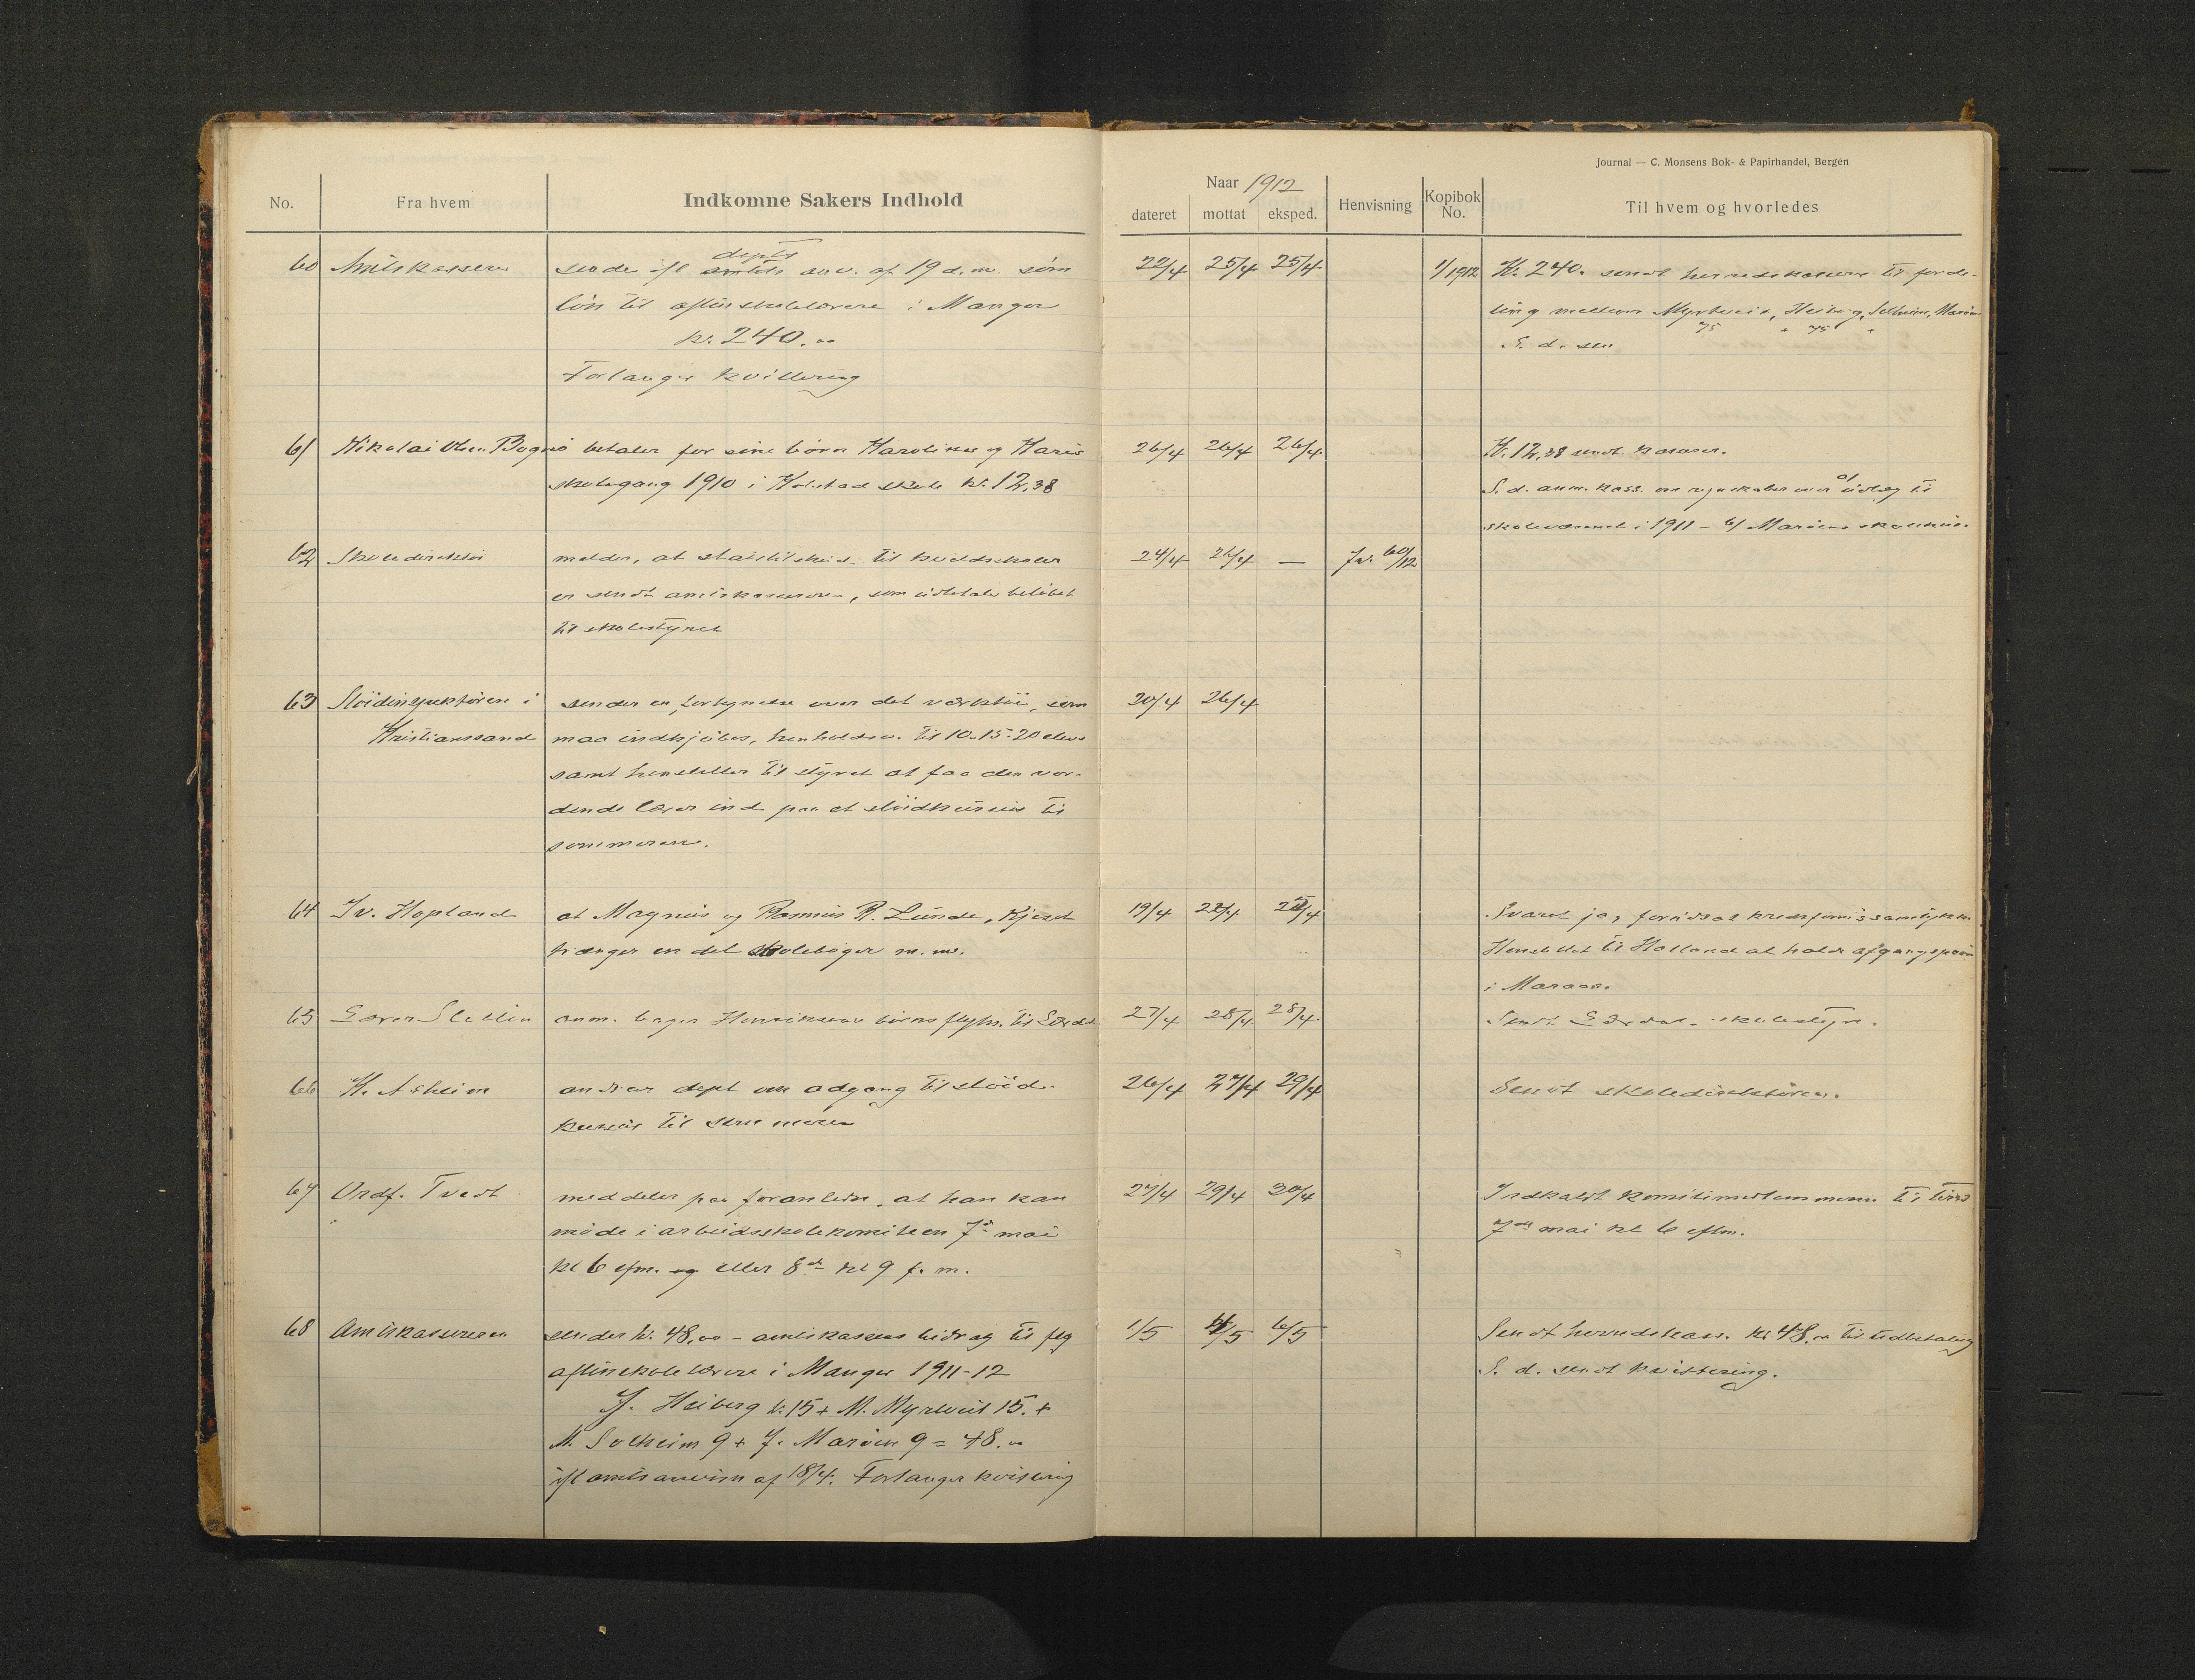 Journal — C. Monsens Bok- & Papirhandel, Bergen
No. Fra hvem Indkomne Sakers Indhold Naar 1912 dateret mottat eksped. Henvisning Kopibok No. Til hvem og hvorledes
60 Amtskasserer sender ifl depts amtets anv. af 19 d.m. som 22/4 25/4 25/4 1/1912 Kr. 240. sendt herredskasserer til forde-
løn til aftenskolelærere i Manger ling mellem Myrtveit, Heiberg, Solheim, Marøen
kr. 240.00 75 " 45 "
S. d. sen
Forlanger kvittering
61 Nikolai Olsen Bognø betaler for sine børn Karoline og Haris 26/4 26/4 26/4 Kr. 12,38 sendt kasserer.
skolegang 1910 i Holstad skole kr. 12,38 S. d. anm. kass. om regnskaber over utlæg til
skolevæsenet i 1911 - b/ Marøens skolehus.
62 Skoledirektør melder, at statstilskud til kveldskoler 24/4 26/4 — Jr. 60/12
er sendt amtskassereren, som utbetaler beløbet
til skolestyret
63 Sløidinspektøren i sender en fortegnelse over det verktøi, som 20/4 26/4
Kristianssand maa indkjøbes, henholdsv. til 10-15-20 elever
samt henstiller til styret at faa den vor-
dende lærer ind paa et sløidkursus til
sommeren.
64 Iv. Hopland at Magnus og Rasmus R. Lunde, Kjeset 19/4 22/4 Svaret ja, forutsat kredsforms samtykke.
trænger en del skolebøger m.m. Henstillet til Halland at holde afgangsprøve
i Maraas.
65 Lærer Sletten anm. barga Henriksens børns flytn. til Lærdal 27/4 28/4 28/4 Sendt Lærdal skolestyre.
66 K. Askeim andrar dept om adgang til sløid- 26/4 27/4 29/4 Sendt skoledirektøren.
kursus til sommeren
67 Ordf. Tvedt meddeler paa foranledn. at han kan 27/4 29/4 30/4 Indkaldt komitemedlemmerne til tirsd
møde i arbeidsskolekomiteen 7de mai 7de mai kl 6 eftm.
kl 6 efm. og eller 8de kl 9 f.m.
68 Amtskassereren sender kr. 48,00 - amtskassens bidrag til flg 1/5 4/5 6/5 Sendt herredskas. kr 48.00 til udbetaling
aftenskolelærere i Manger 1911-12 S. d. sendt kvittering.
J. Heiberg kr. 15 + M. Myrtveit 15. +
M. Solheim 9 + J. Marøen 9 = 48.00
ifl amtsanvisn af 18/4. Forlanger kvittering